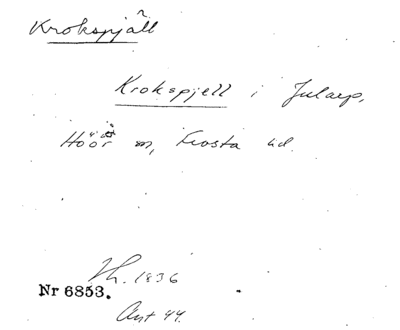 Krokspjäll
Krokspjell i Julaep,
Höör sn, Frosta hd.
Th. 1836
Nr 6853.
Ant 44.